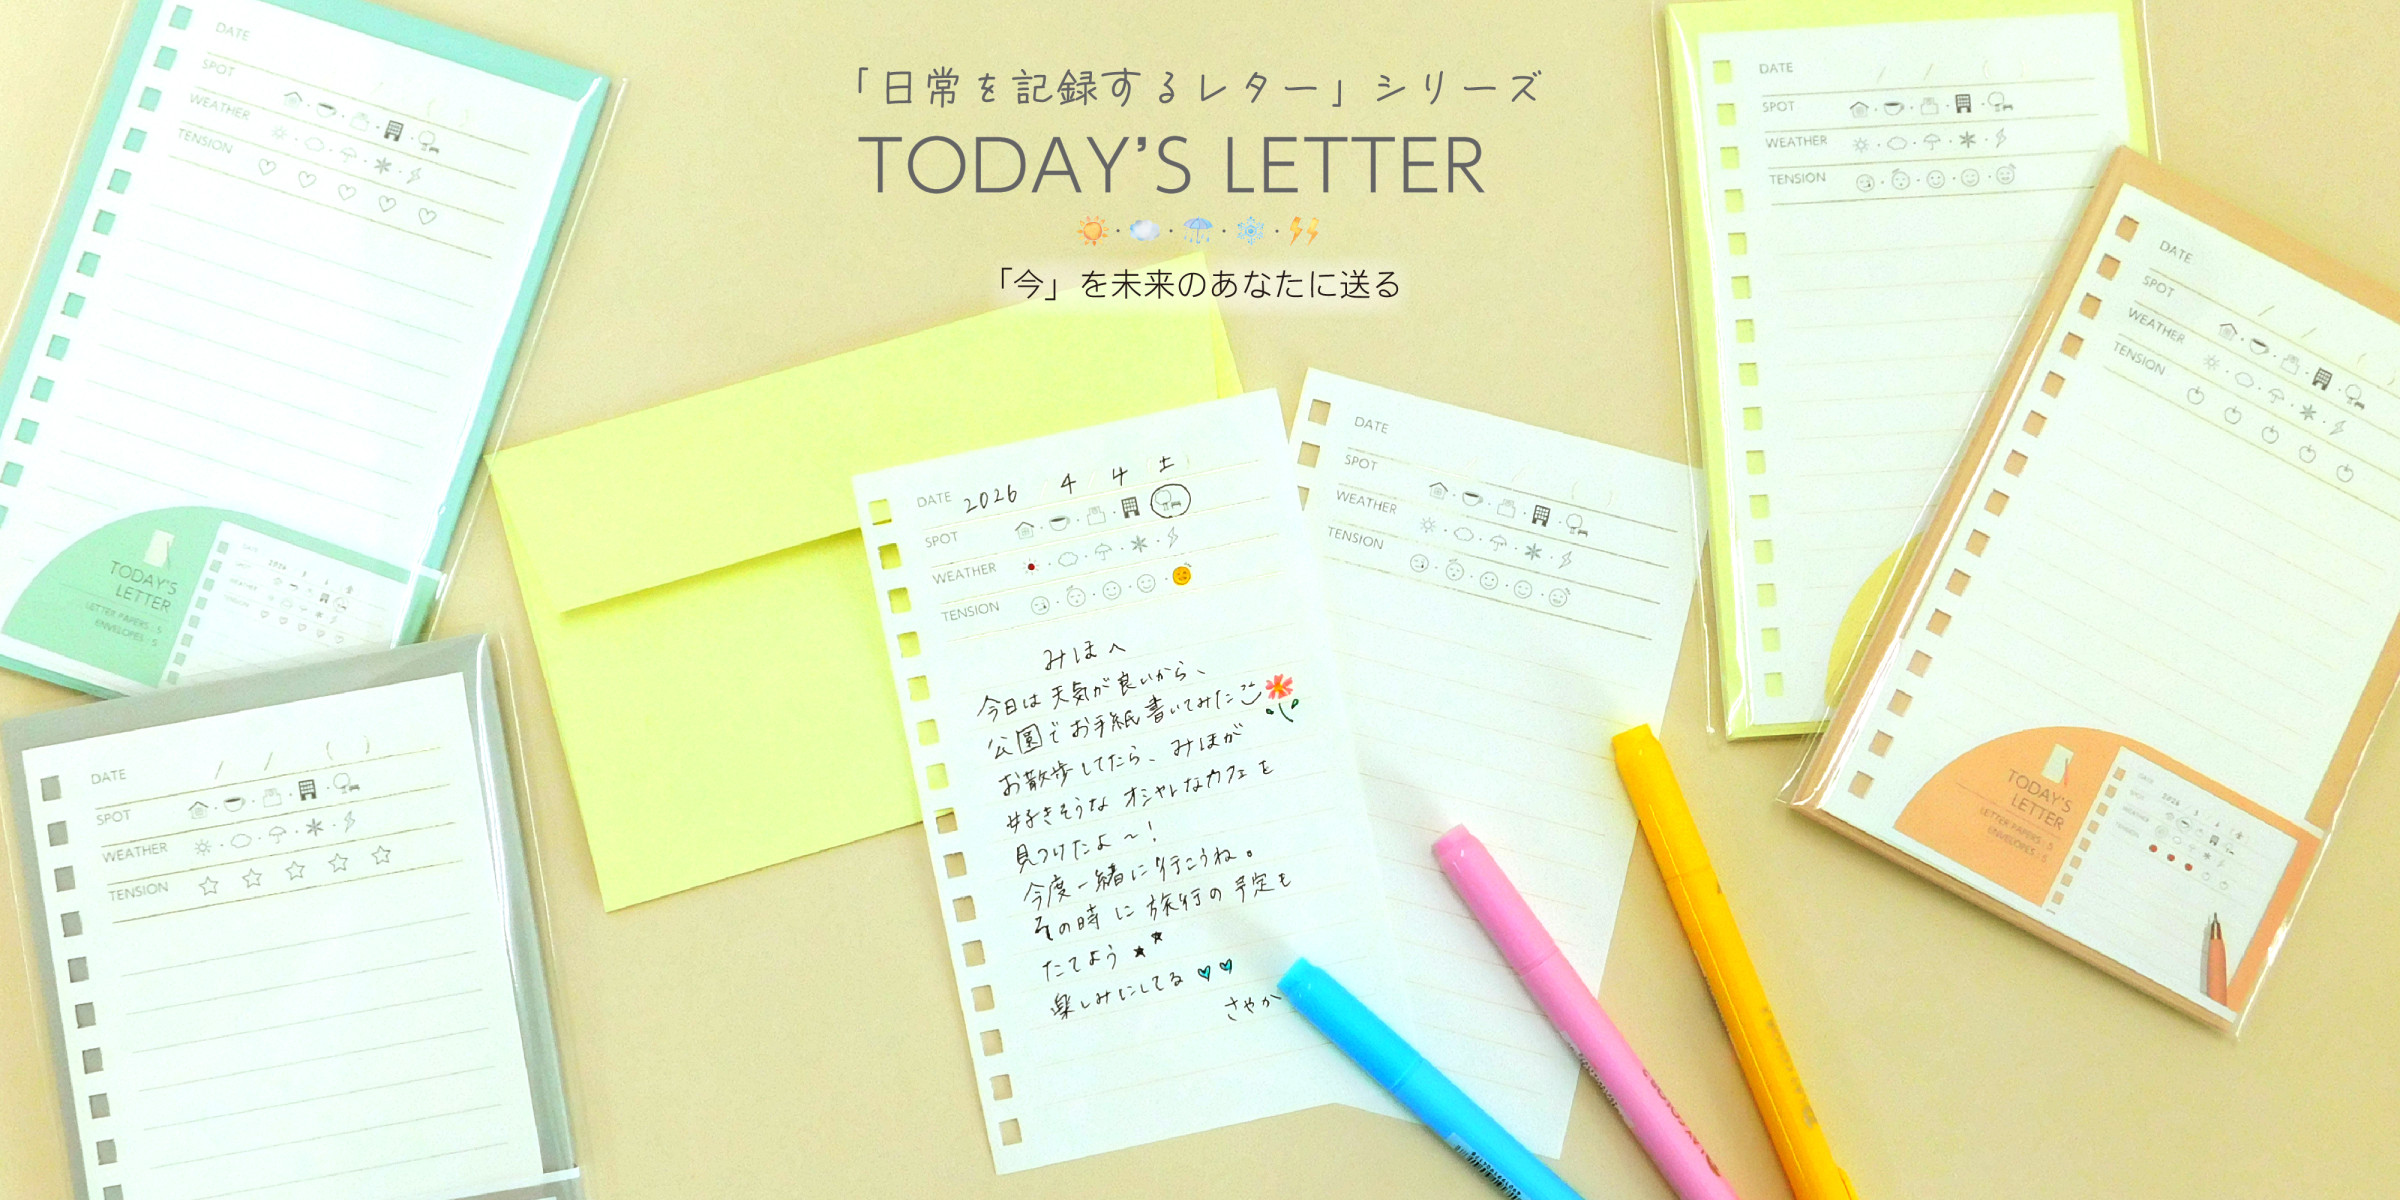 「日常を記録するレター」シリーズ
TODAY'S LETTER
「今」を未来のあなたに送る
DATE
SPOT
WEATHER
TENSION
TODAY'S
LETTER
LETTER PAPERS・5
ENVELOPES・5
DATE
SPOT
WEATHER
TENSION
DATE 2026 4 4 土
SPOT
WEATHER
TENSION
みほへ
今日は天気が良いから、
公園でお手紙書いてみた
お散歩してたら、みほが
好きそうなオシャレなカフェを
見つけたよ〜!
今度一緒に行こうね。
その時に旅行の予定も
たてよう
楽しみにしてる
さやか
DATE
SPOT
WEATHER
TENSION
DATE
SPOT
WEATHER
TENSION
DATE
SPOT
WEATHER
TENSION
TODAY'S
LETTER
LETTER PAPERS・5
ENVELOPES・5